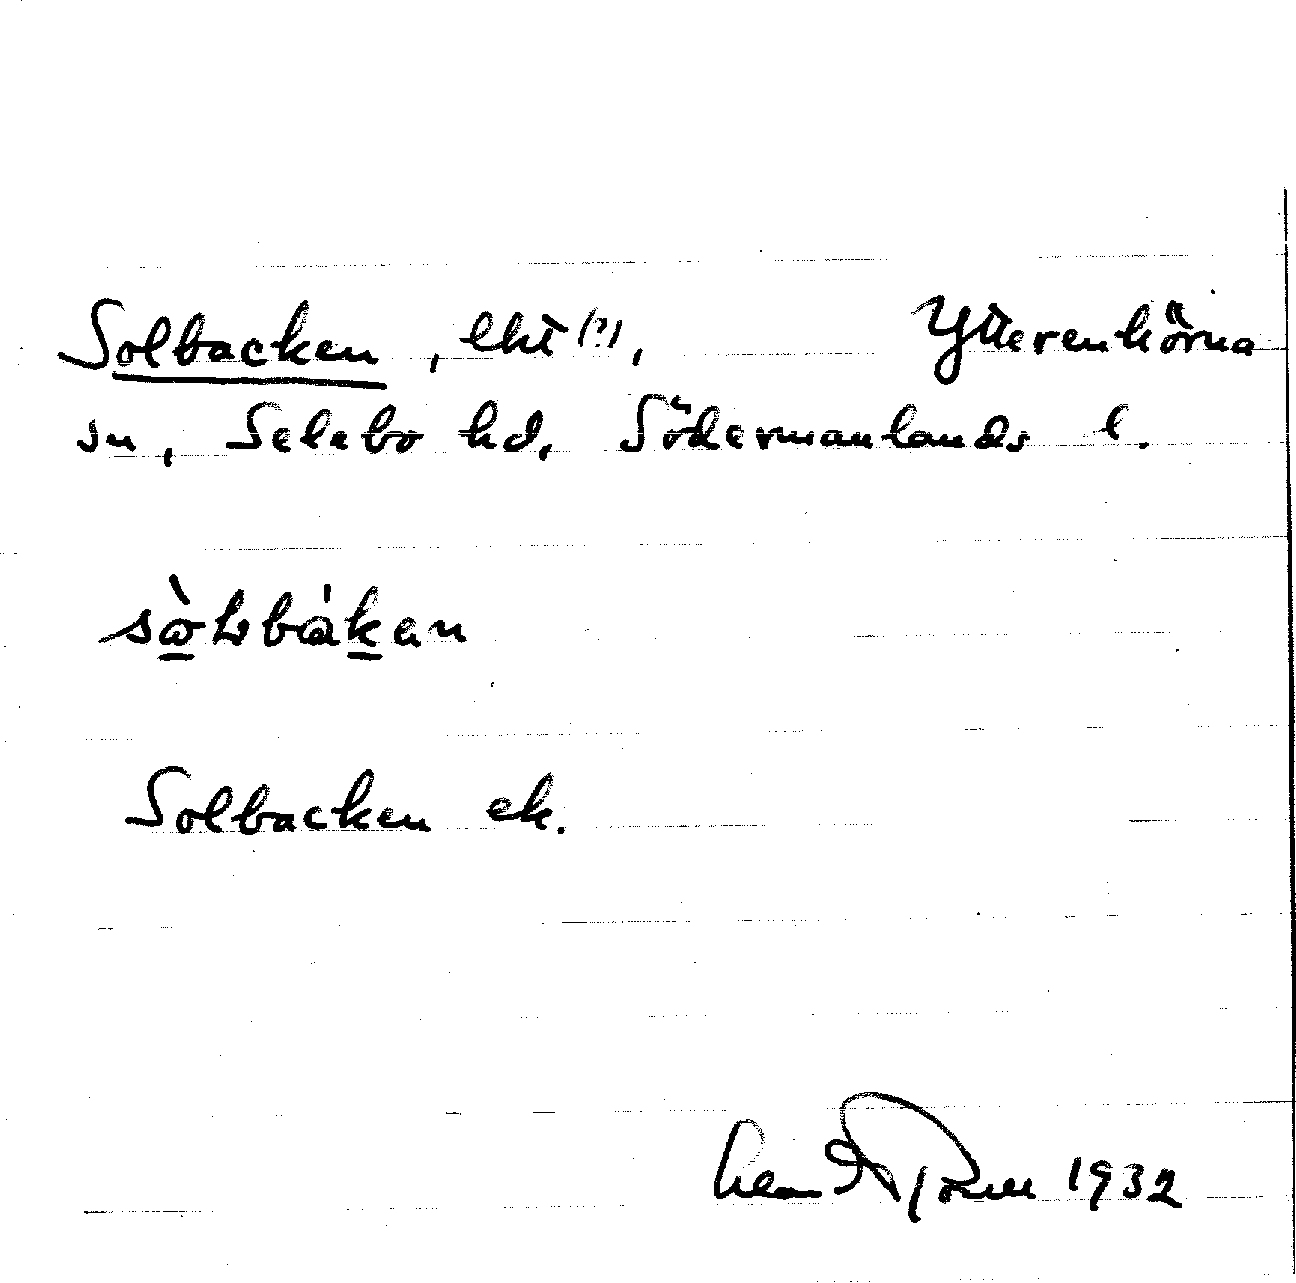 Solbacken, lht (?), Ytterenhörna
sn, Selebo hd, Södermanlands l.
sò̱lbáḵan
Solbacken ek.
1932